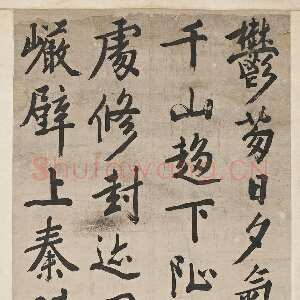 鬱日夕氣
千山趨下阯
處修封迹
巖壁上秦
Shufawang.CN